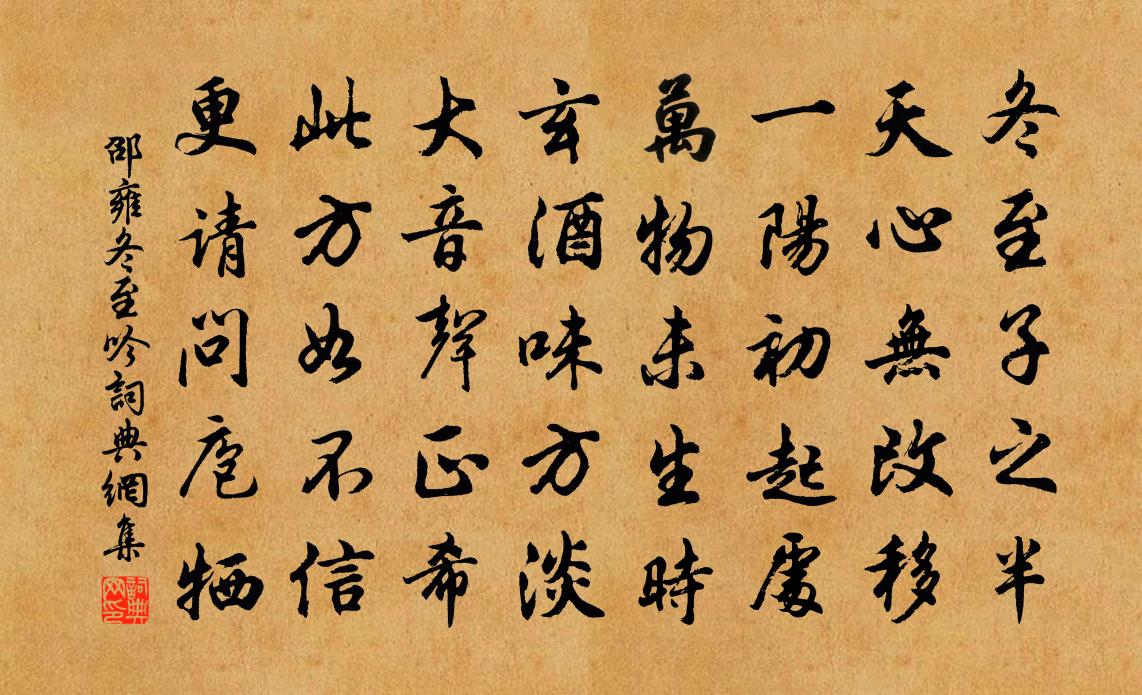 冬至子之半
天心無改移
一陽初起處
萬物未生時
玄酒味方淡
大音聲正希
此方如不信
更请問庖牺
邵雍冬至吟詞典網集
詞典网印